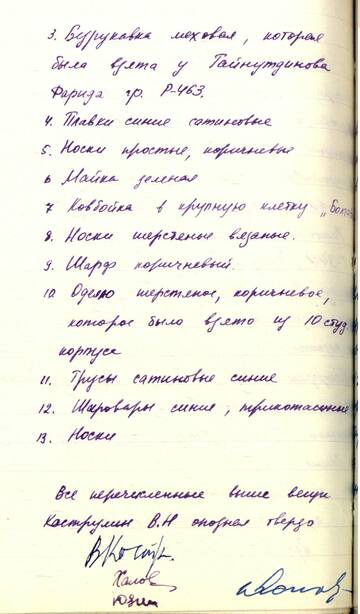 3. Безрукавка меховая, которая
была взята у Гайнутдинова
Фарида гр. Р-463.
4. Плавки синие сатиновые
5. Носки простые, коричневые
6 Майка зеленая
7 Ковбойка в крупную клетку
8. Носки шерстяные вязаные.
9. Шарф коричневый.
10 Одеяло шерстяное, коричневое,
которое было взято из 10 студ
корпуса
11. Трусы сатиновые синие
12. Шаровары синие, трикотажные
13. Носки
Все перечисленные выше вещи
В.Н опознал твердо